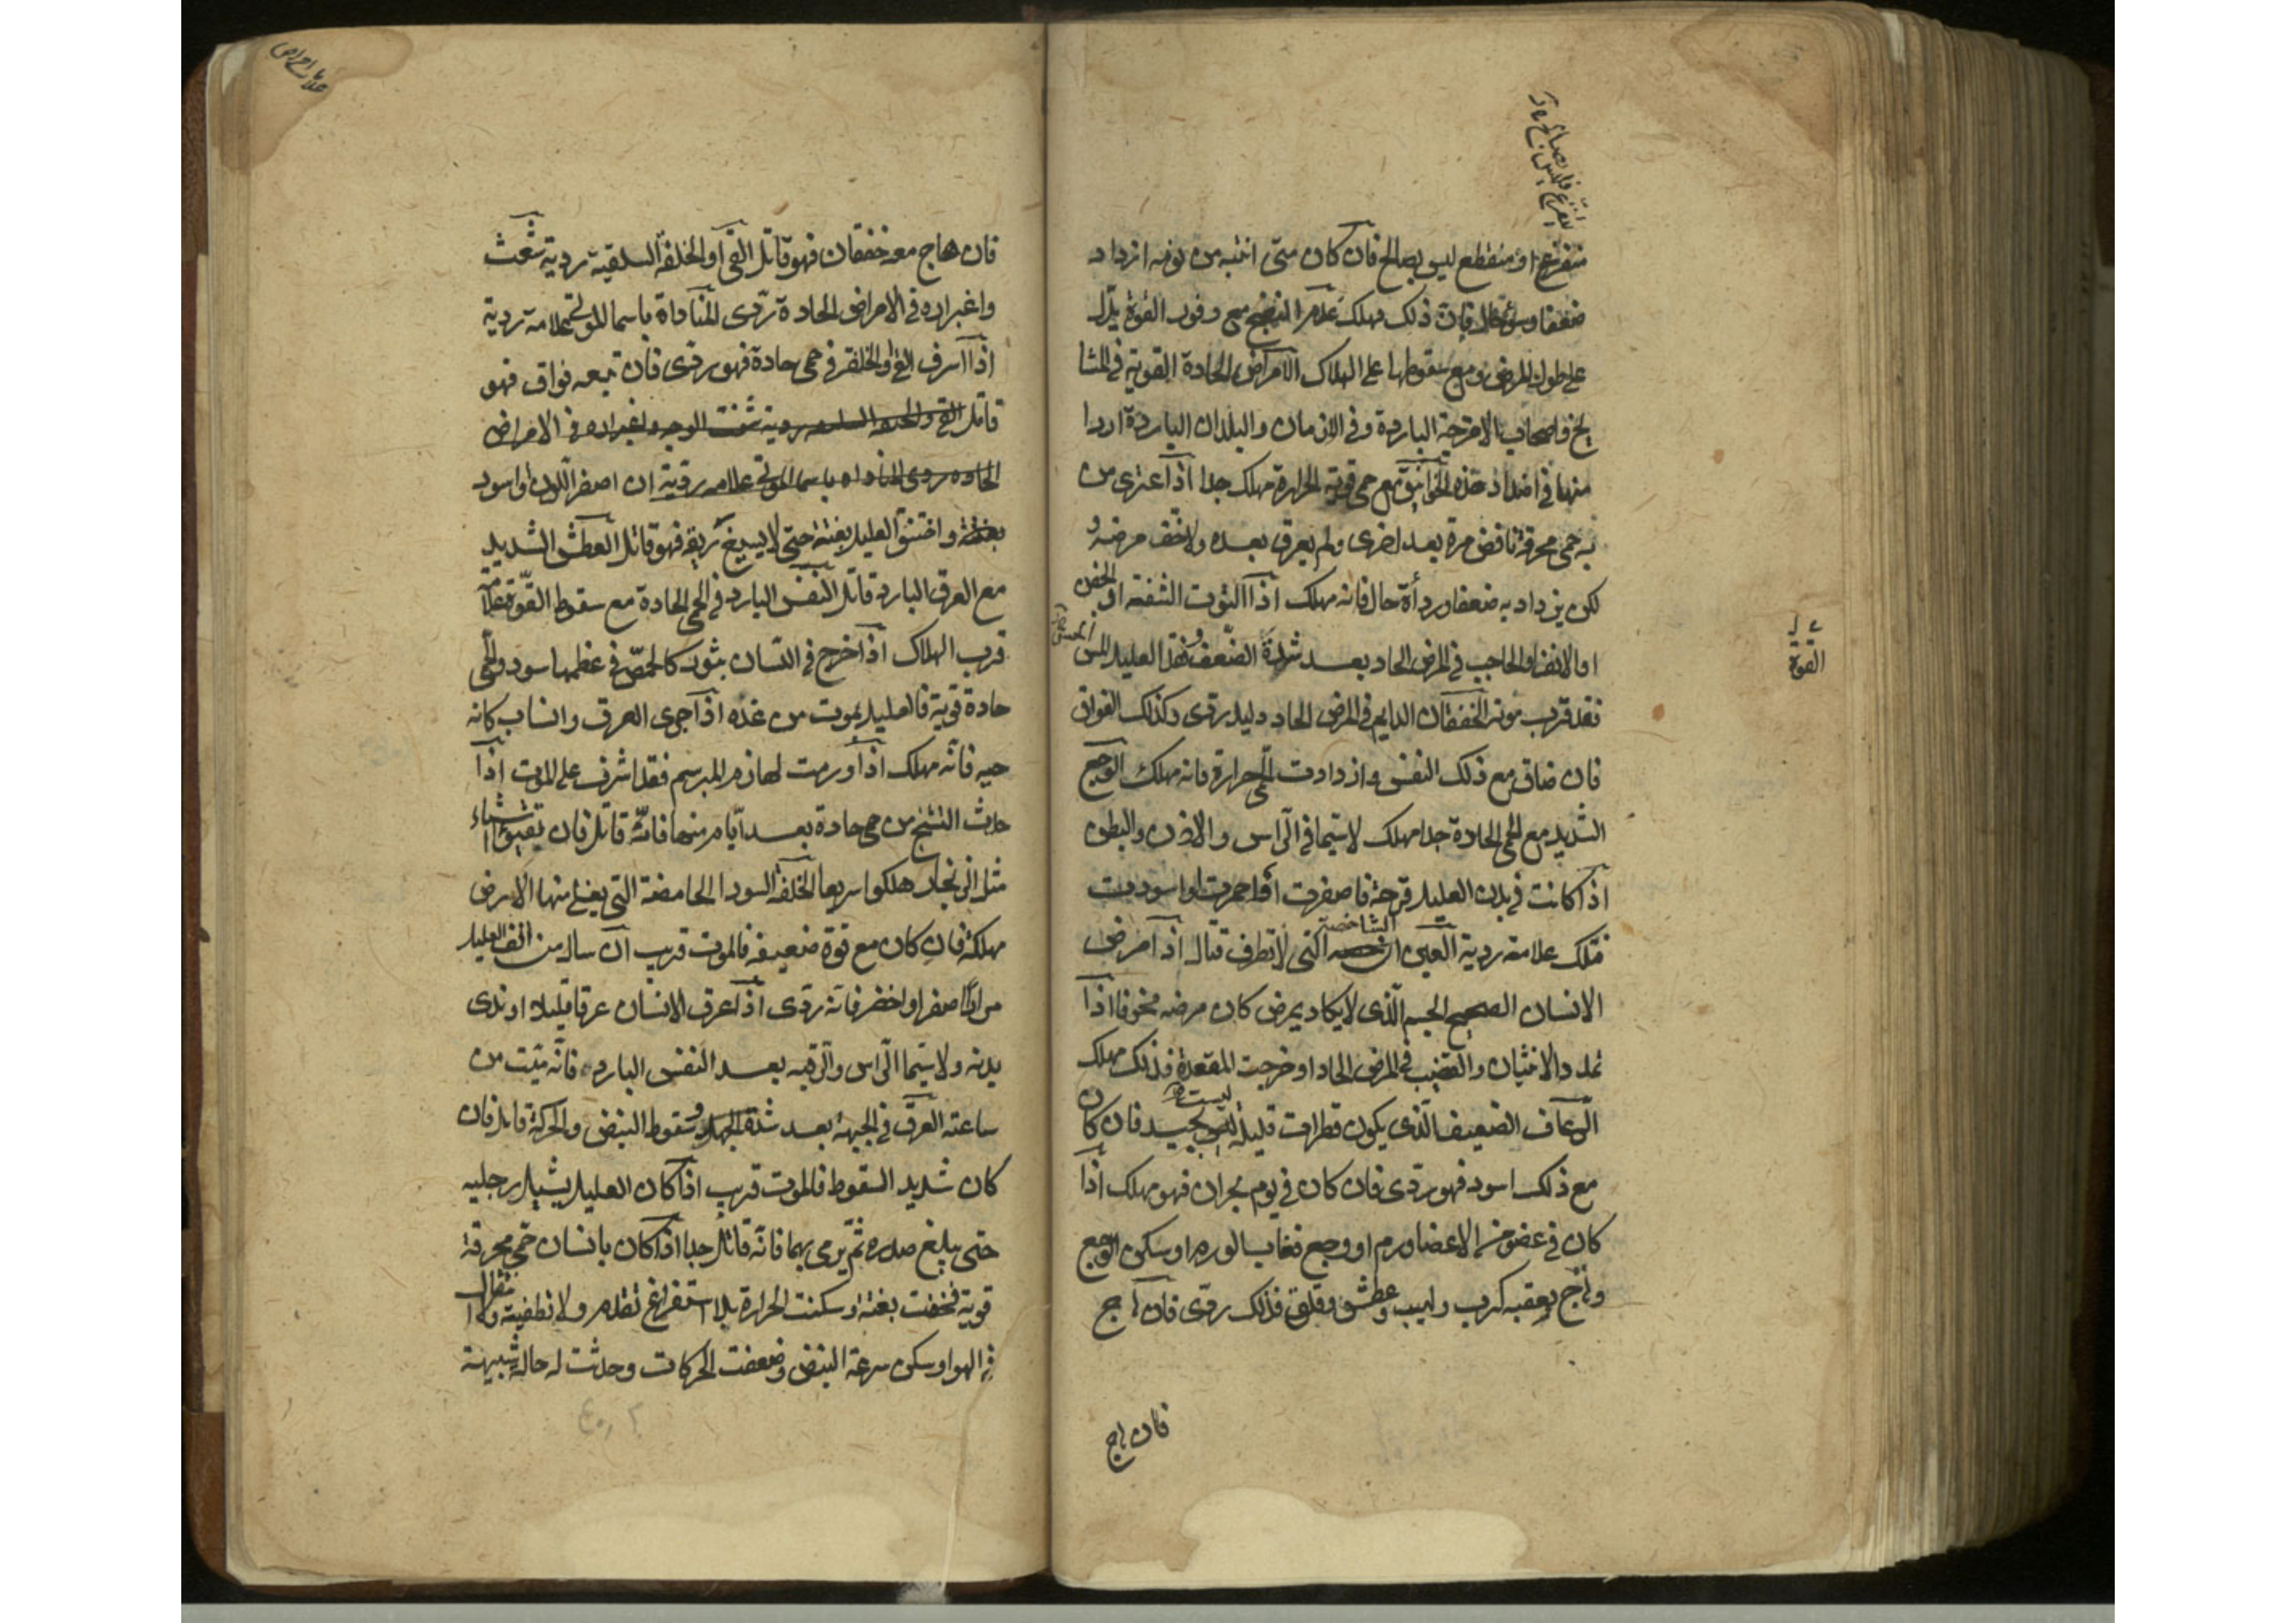 متفزع او منقطع ليس بصالح فان كان متى انتبه من نومه ازداد
ضعفا وسوء حال فان ذلك مهلك عدم النضج مع وفور القوة يدل
على طول المرض ومع سقوطها على الهلاك الامراض الحادة القوية في المشا
يخ واصحاب الامزجة الباردة وفي الازمان والبلدان الباردة اردا
منها في اضداد هذه الخوانيق مع حمى قوية الحرارة مهلك جدا اذا اعترى من
به حمى محرقة نافض مرة بعد اخرى ولم يعرق بعده ولا خف مرضه و
لكن يزداد به ضعفا ورداة حال فانه مهلك اذا التوت الشفة او الجفن
او الانف او الحاجب في المرض الحاد بعد شدة الضعف وفقد العليل الحس
فقد قرب موته الخفقان الدايم في المرض الحاد دليل ردى وكذلك الفواق
فان ضاق مع ذلك النفس وازدادت الحمى حرارة فانه مهلك الوجع
الشديد مع الحمى الحادة جدا مهلك لا سيما في الراس والاذن والبطن
اذا كانت في بدن العليل قرحة فاصفرت او احمرت او اسودت
فتلك علامة ردية العين الشاخصة التى لا تطرف قتال اذا مرض
الانسان الصحيح الجسم الذى لا يكاد يمرض كان مرضه مخوفا اذا
تمدد الانثيان والقضيب في المرض الحاد او خرجت المقعدة فذلك مهلك
الرعاف الضعيف الذى يكون قطرات قليلة ليست بجيد فان كان
مع ذلك اسود فهو ردى فان كان في يوم بحران فهو مهلك اذا
كان في عضو من الاعضا ورم او وجع فغاب الورم او سكن الوجع
وهاج بعقبه كرب ولهيب وعطش وقلق فذلك ردى فان هاج
فان هاج
القوة
فان هاج معه خفقان فهو قاتل القى او الخلفة السلقية ردية شعث
واغبراره في الامراض الحادة ردى المناداة باسما الموتى علامة ردية
اذا اسرف القى او الخلفة في حمى حادة فهو ردى فان تبعه فواق فهو
قاتل القى والخلفة السلقية ردية شعث الوجه واغبراره في الامراض
الحادة ردى المناداه باسما الموتى علامه ردية ان اصفر اللون او اسود
بغتة واختنق العليل بغتة حتى لا يسيغ ريقه فهو قاتل العطش الشديد
مع العرق البارد قاتل النفس البارد في الحمى الحادة مع سقوط القوة علامة
قرب الهلاك اذا خرج في اللسان بثور كالحمص في عظمها سود والحمى
حادة قوية فالعليل يموت من غده اذا جرى العرق وانساب كانه
حيه فانه مهلك اذا ورمت لهازم المبرسم فقد اشرف على الموت اذا
حدث التشنج من حمى حادة بعد ايام منها فانه قاتل فان تقيؤا اشياء
مثل الزنجار هلكوا سريعا الخلفة السودا الحامضة التى يغلى منها الارض
مهلكة فان كان مع قوة ضعيفة فالموت قريب ان سال من انف العليل
مرار اصفر او اخضر فانه ردى اذا عرق الانسان عرقا قليلا او ندى
بدنه ولا سيما الراس والرقبه بعد النفس البارد فانه ميت من
ساعته العرق في الجبهة بعد شدة الجهد وسقوط النبض والحركة قاتل فان
كان شديد السقوط فالموت قريب اذا كان العليل يشيل رجليه
حتى يبلغ صدره ثم يرمى بهما فانه قاتل جدا اذا كان بانسان حمى محرقة
قوية فخفت بغتة او سكنت الحرارة بلا استفراغ تقدم ولا تطفية ولا انتقال
في الهوا وسكن سرعة النبض وضعفت الحركات وحدثت له حالة شبيهة